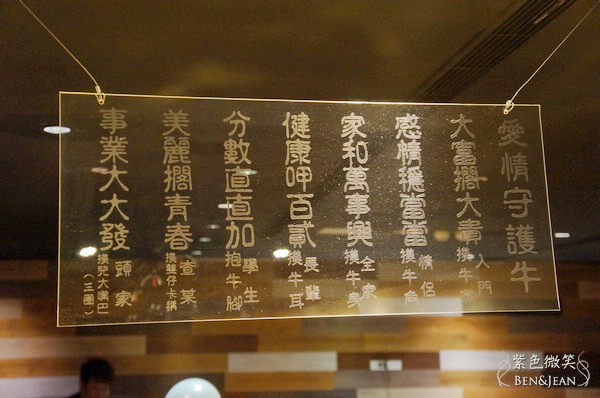 愛情守護牛
大富擱大貴 入門 摸牛
感情穩當當 情侶 摸牛角
家和萬事興 全家 摸牛身
健康呷百貳 長輩 摸牛耳
分數直直加 學生 抱牛腳
美麗擱青春 查某 摸雙仔卡鏘
事業大大發 頭家 摸兒大嘴巴（三圈）
紫色微笑
BEN&JEAN